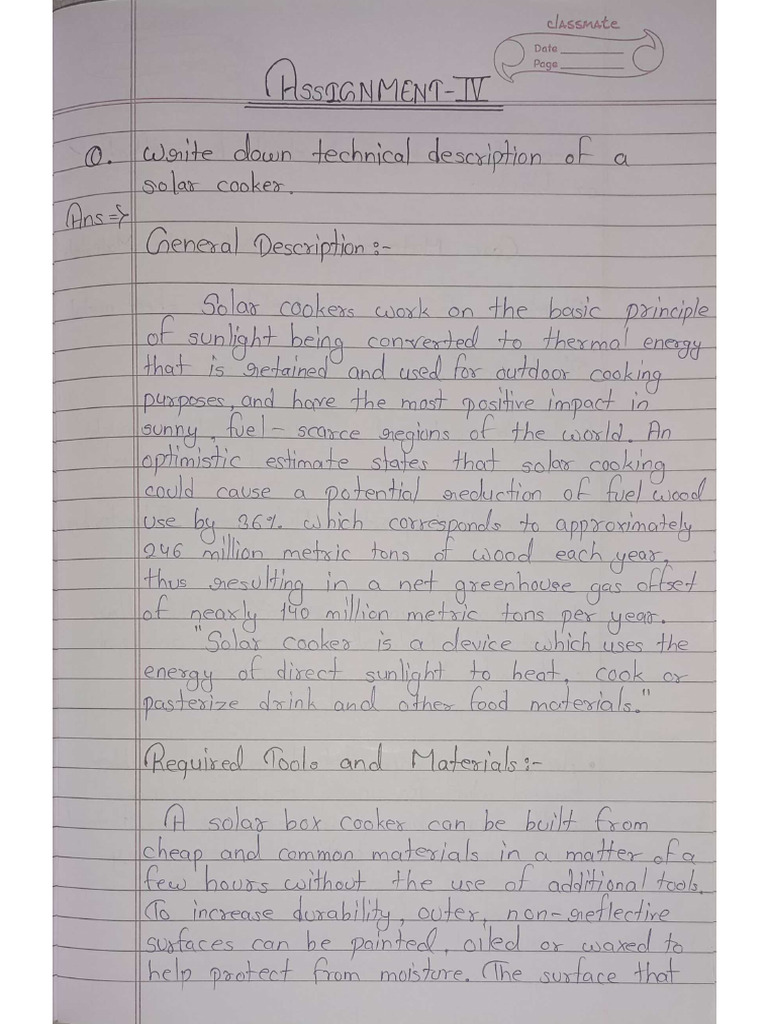 classmate
Date
Page
ASSIGNMENT-IV
Q. Write down technical description of a
solar cooker.
Ans⇒
General Description:-
Solar cookers work on the basic principle
of sunlight being converted to thermal energy
that is retained and used for outdoor cooking
purposes, and have the most positive impact in
sunny, fuel-scarce regions of the world. An
optimistic estimate states that solar cooking
could cause a potential reduction of fuel wood
use by 36% which corresponds to approximately
246 million metric tons of wood each year,
thus resulting in a net greenhouse gas offset
of nearly 140 million metric tons per year.
"Solar cooker is a device which uses the
energy of direct sunlight to heat, cook or
pasterize drink and other food materials."
Required Tools and Materials:-
A solar box cooker can be built from
cheap and common materials in a matter of a
few hours without the use of additional tools.
To increase durability, outer, non-reflective
surfaces can be painted, oiled or waxed to
help protect from moisture. The surface that